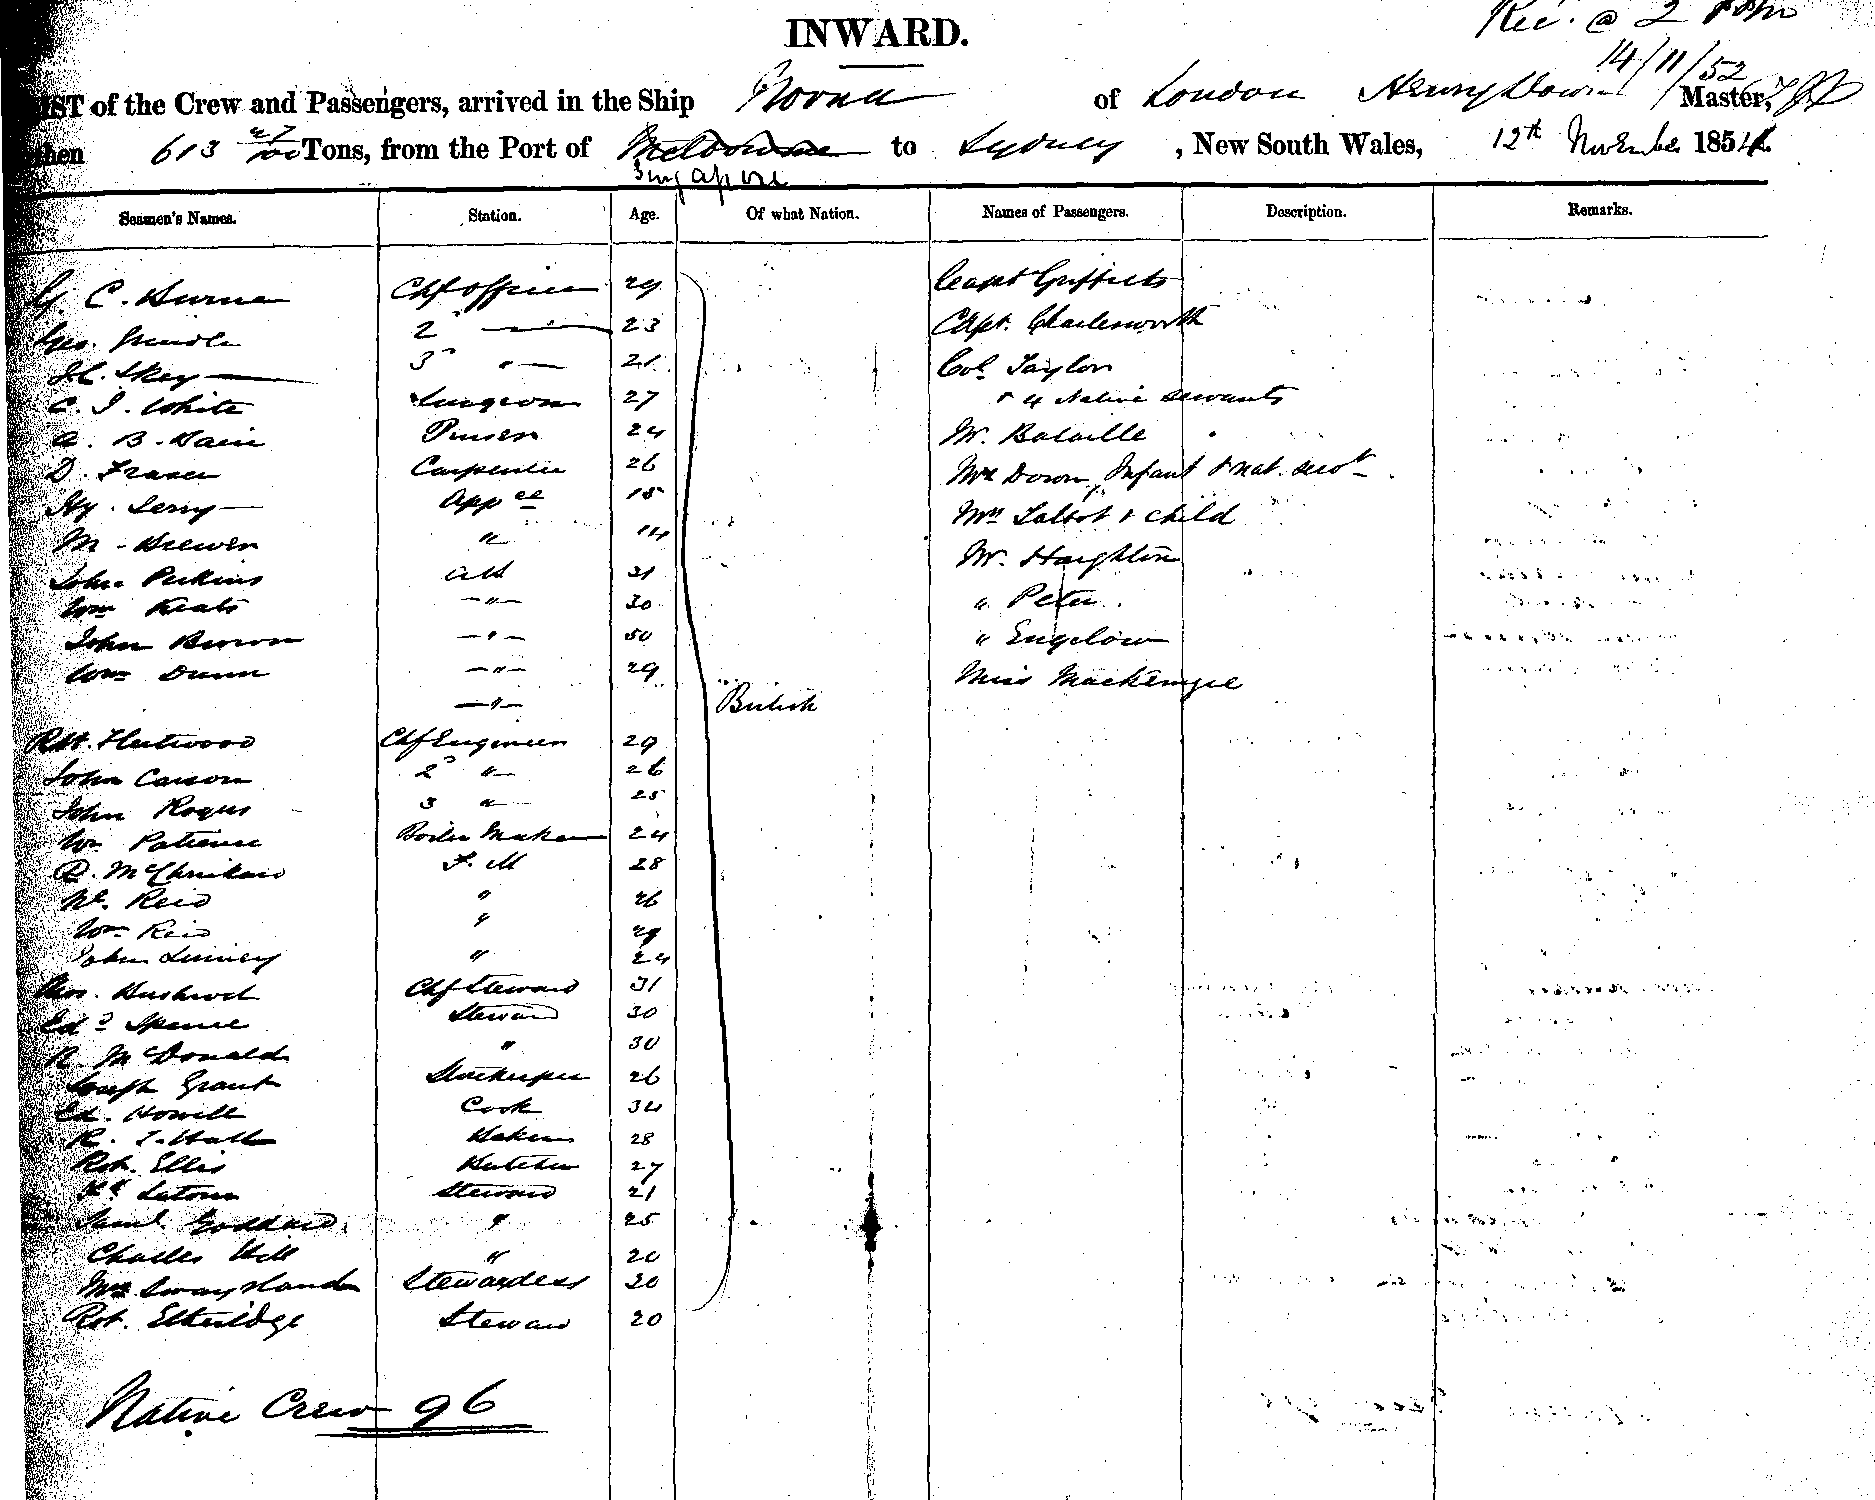 INWARD.
Rec. @ 2 pm
14/11/52
LIST of the Crew and Passengers, arrived in the Ship Norna of London Henry Down Master,
Burthen 613 27/100 Tons, from the Port of Melbourne to Sydney, New South Wales, 12th November 1854
Singapore
Seamen's Names. Station. Age. Of what Nation. Names of Passengers. Description. Remarks.
C. Burne Chf Officer 29 Capt Griffiths
Geo. 2 " 23 Capt. Charlesworth
Skey 3 " 21 Col. Taylor
C. J. White Surgeon 27 & 4 Native servants
A. B. Dain Purser 24 Mr. Bataille
D. Fraser Carpenter 26 Mrs Down, Infant & nat. servt
Hy. Terry Appce 18 Mrs Talbot & child
M. Brewer " 14 Mr. Haighton
John Perkins AB 31 " Peter
Wm Keats " 30 " Engelow
John Brown " 50
Wm Dunn " 29 Miss Mackenzie
" British
Rbt. Fleetwood Chf Engineer 29
John Carson 2d " 26
John Rogers 3 " 25
Wm Patience Boiler Maker 24
F. M 28
Reid " 26
Wm Reid " 29
John " 24
Chf Steward 31
Edd Spence Steward 30
R. McDonald " 30
Joseph Grant Storekeeper 26
Ed. Howell Cook 34
R. Hall Baker 28
Rob. Ellis Butcher 27
Steward 21
Saml. Goddard " 25
Charles Hill " 20
Mrs Swayland Stewardess 30
Rot. Etheridge Steward 20
Native Crew 96